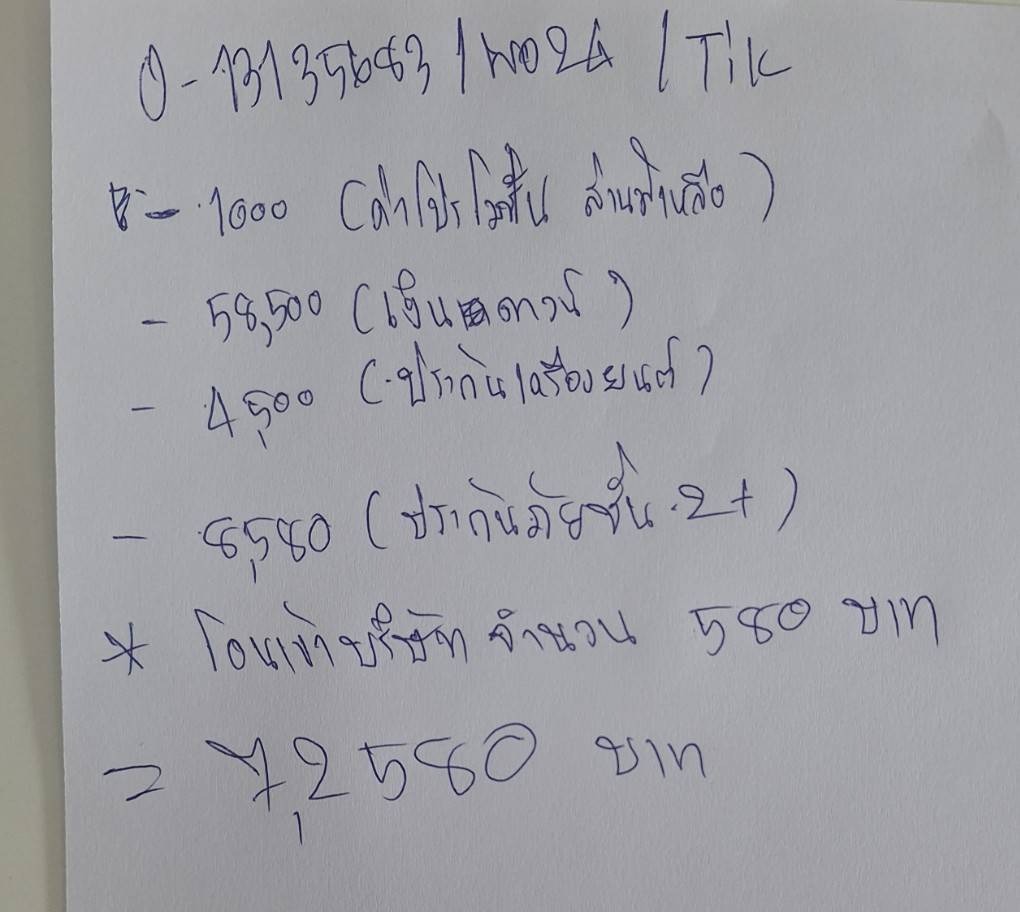 O-13135683 / W024 / Tik
- 1000 (ค่าโปรโมชั่น ส่วนที่เหลือ)
- 58,500 (เงินดาวน์)
- 4,500 (ประกันเครื่องยนต์)
- 8,580 (ประกันภัยชั้น 2+)
* โอนเข้าบริษัท จำนวน 580 บาท
= 7,2580 บาท